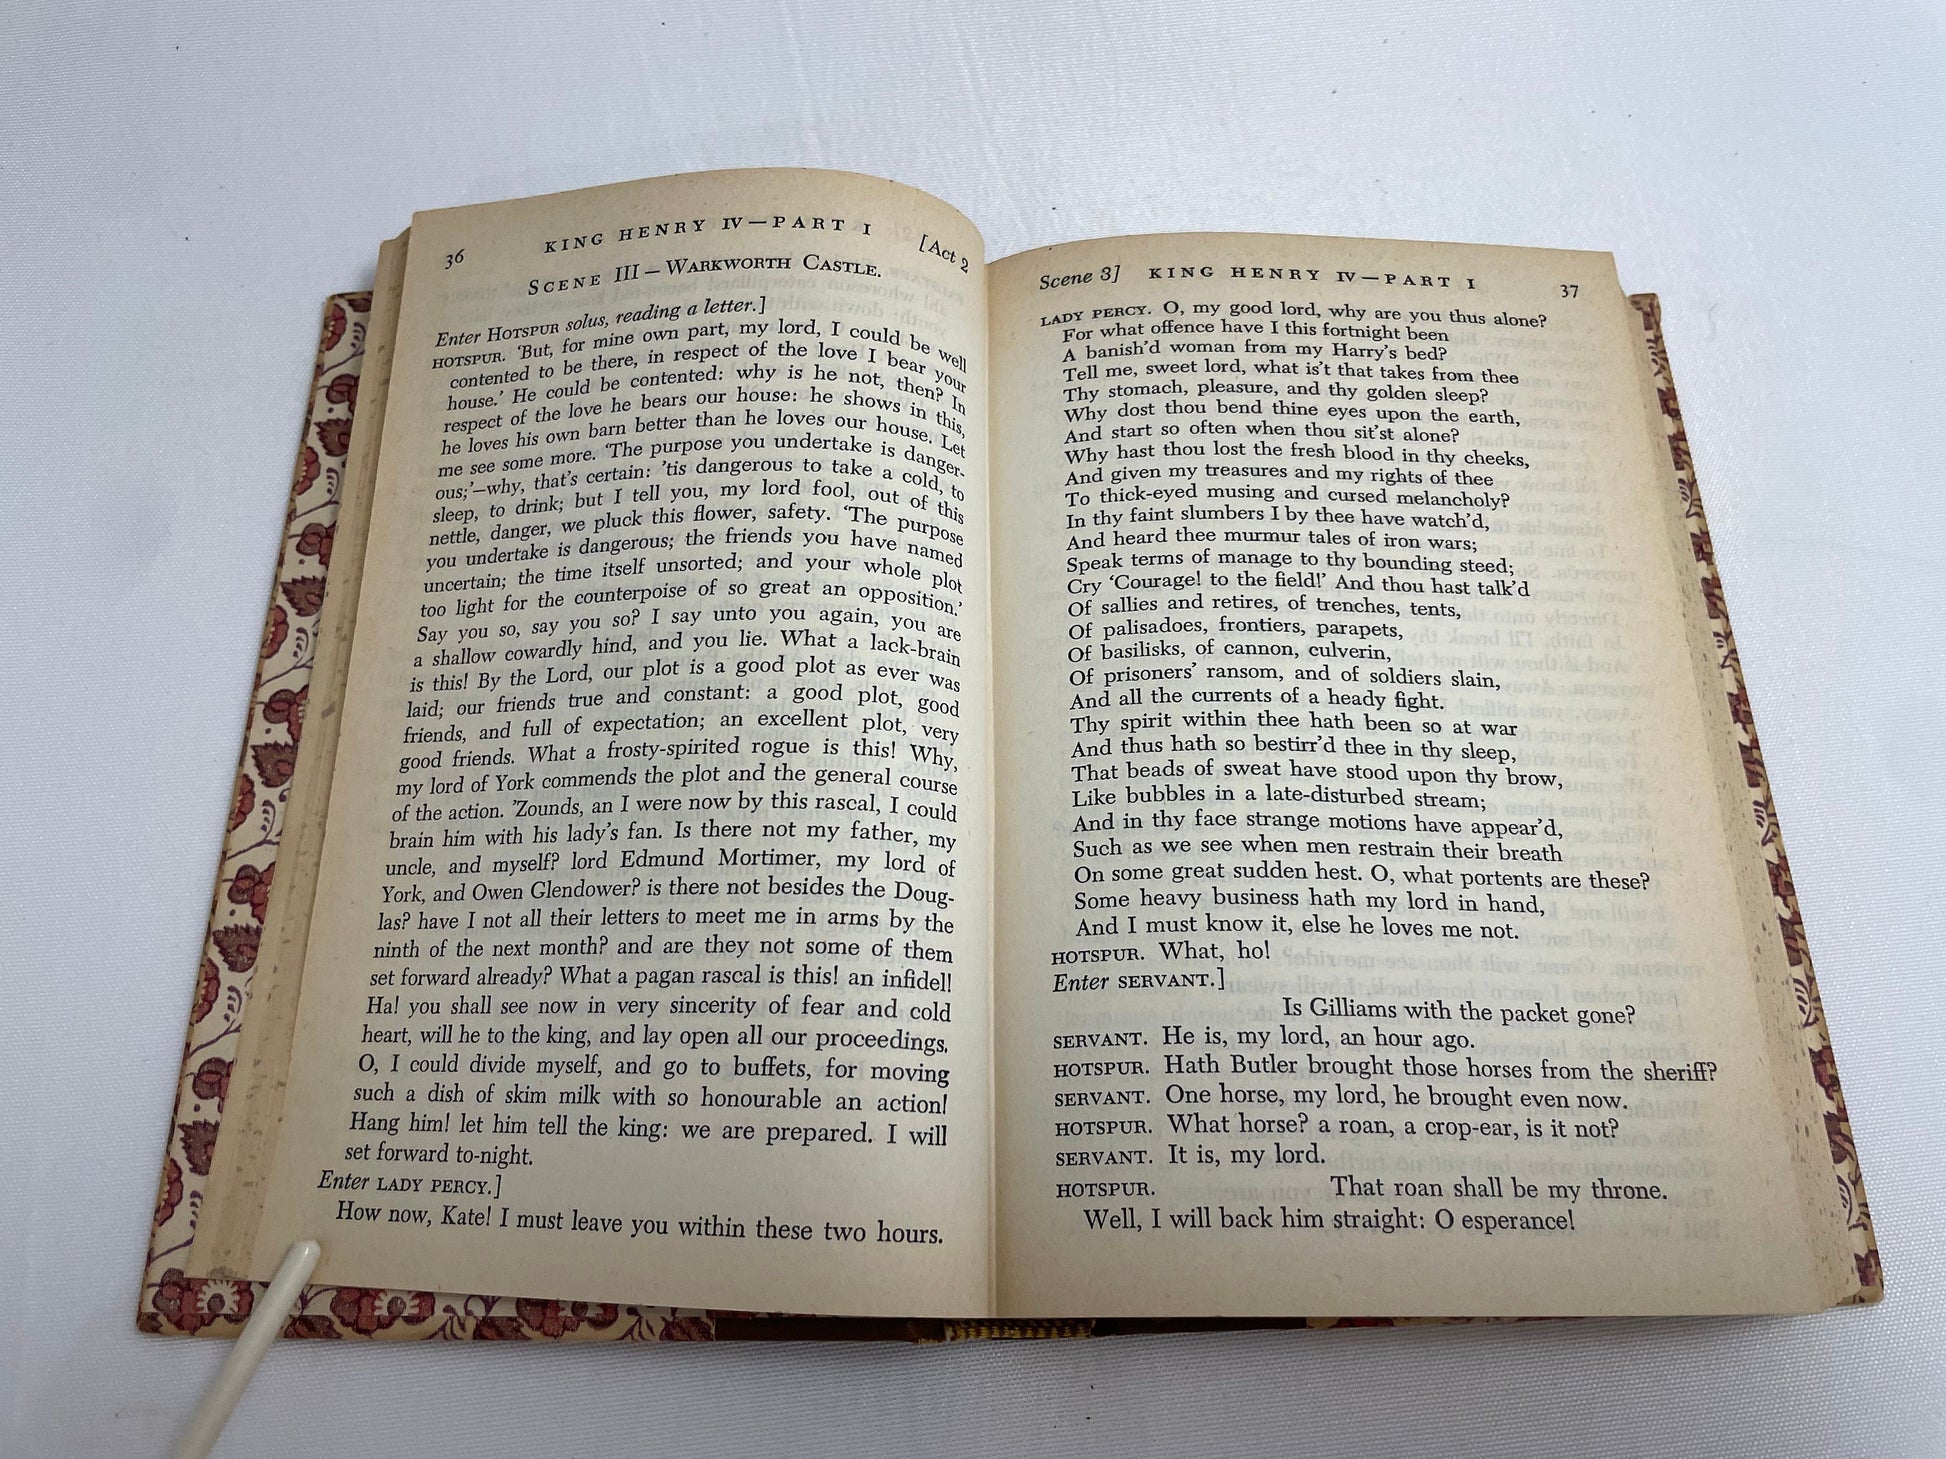 36 KING HENRY IV—PART I [Act 2
SCENE III — WARKWORTH CASTLE.
Enter HOTSPUR solus, reading a letter.]
HOTSPUR. 'But, for mine own part, my lord, I could be well
contented to be there, in respect of the love I bear your
house.' He could be contented: why is he not, then? In
respect of the love he bears our house: he shows in this,
he loves his own barn better than he loves our house. Let
me see some more. 'The purpose you undertake is danger-
ous;'—why, that's certain: 'tis dangerous to take a cold, to
sleep, to drink; but I tell you, my lord fool, out of this
nettle, danger, we pluck this flower, safety. 'The purpose
you undertake is dangerous; the friends you have named
uncertain; the time itself unsorted; and your whole plot
too light for the counterpoise of so great an opposition.'
Say you so, say you so? I say unto you again, you are
a shallow cowardly hind, and you lie. What a lack-brain
is this! By the Lord, our plot is a good plot as ever was
laid; our friends true and constant: a good plot, good
friends, and full of expectation; an excellent plot, very
good friends. What a frosty-spirited rogue is this! Why,
my lord of York commends the plot and the general course
of the action. 'Zounds, an I were now by this rascal, I could
brain him with his lady's fan. Is there not my father, my
uncle, and myself? lord Edmund Mortimer, my lord of
York, and Owen Glendower? is there not besides the Doug-
las? have I not all their letters to meet me in arms by the
ninth of the next month? and are they not some of them
set forward already? What a pagan rascal is this! an infidel!
Ha! you shall see now in very sincerity of fear and cold
heart, will he to the king, and lay open all our proceedings.
O, I could divide myself, and go to buffets, for moving
such a dish of skim milk with so honourable an action!
Hang him! let him tell the king: we are prepared. I will
set forward to-night.
Enter LADY PERCY.]
How now, Kate! I must leave you within these two hours.
Scene 3] KING HENRY IV—PART I 37
LADY PERCY. O, my good lord, why are you thus alone?
For what offence have I this fortnight been
A banish'd woman from my Harry's bed?
Tell me, sweet lord, what is't that takes from thee
Thy stomach, pleasure, and thy golden sleep?
Why dost thou bend thine eyes upon the earth,
And start so often when thou sit'st alone?
Why hast thou lost the fresh blood in thy cheeks,
And given my treasures and my rights of thee
To thick-eyed musing and cursed melancholy?
In thy faint slumbers I by thee have watch'd,
And heard thee murmur tales of iron wars;
Speak terms of manage to thy bounding steed;
Cry 'Courage! to the field!' And thou hast talk'd
Of sallies and retires, of trenches, tents,
Of palisadoes, frontiers, parapets,
Of basilisks, of cannon, culverin,
Of prisoners' ransom, and of soldiers slain,
And all the currents of a heady fight.
Thy spirit within thee hath been so at war
And thus hath so bestirr'd thee in thy sleep,
That beads of sweat have stood upon thy brow,
Like bubbles in a late-disturbed stream;
And in thy face strange motions have appear'd,
Such as we see when men restrain their breath
On some great sudden hest. O, what portents are these?
Some heavy business hath my lord in hand,
And I must know it, else he loves me not.
HOTSPUR. What, ho!
Enter SERVANT.]
Is Gilliams with the packet gone?
SERVANT. He is, my lord, an hour ago.
HOTSPUR. Hath Butler brought those horses from the sheriff?
SERVANT. One horse, my lord, he brought even now.
HOTSPUR. What horse? a roan, a crop-ear, is it not?
SERVANT. It is, my lord.
HOTSPUR. That roan shall be my throne.
Well, I will back him straight: O esperance!